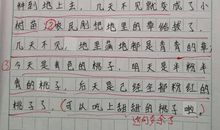 种到地上去，几天不见就变成了小
树苗②农民割把地里的草给拔了，
几天不见，地里满地都是青青的草，
③今天是青色的桃子，明天是半粉半
青的桃子，后天是已经全部粉红的
桃子了，可以吃上甜甜的桃子啦！